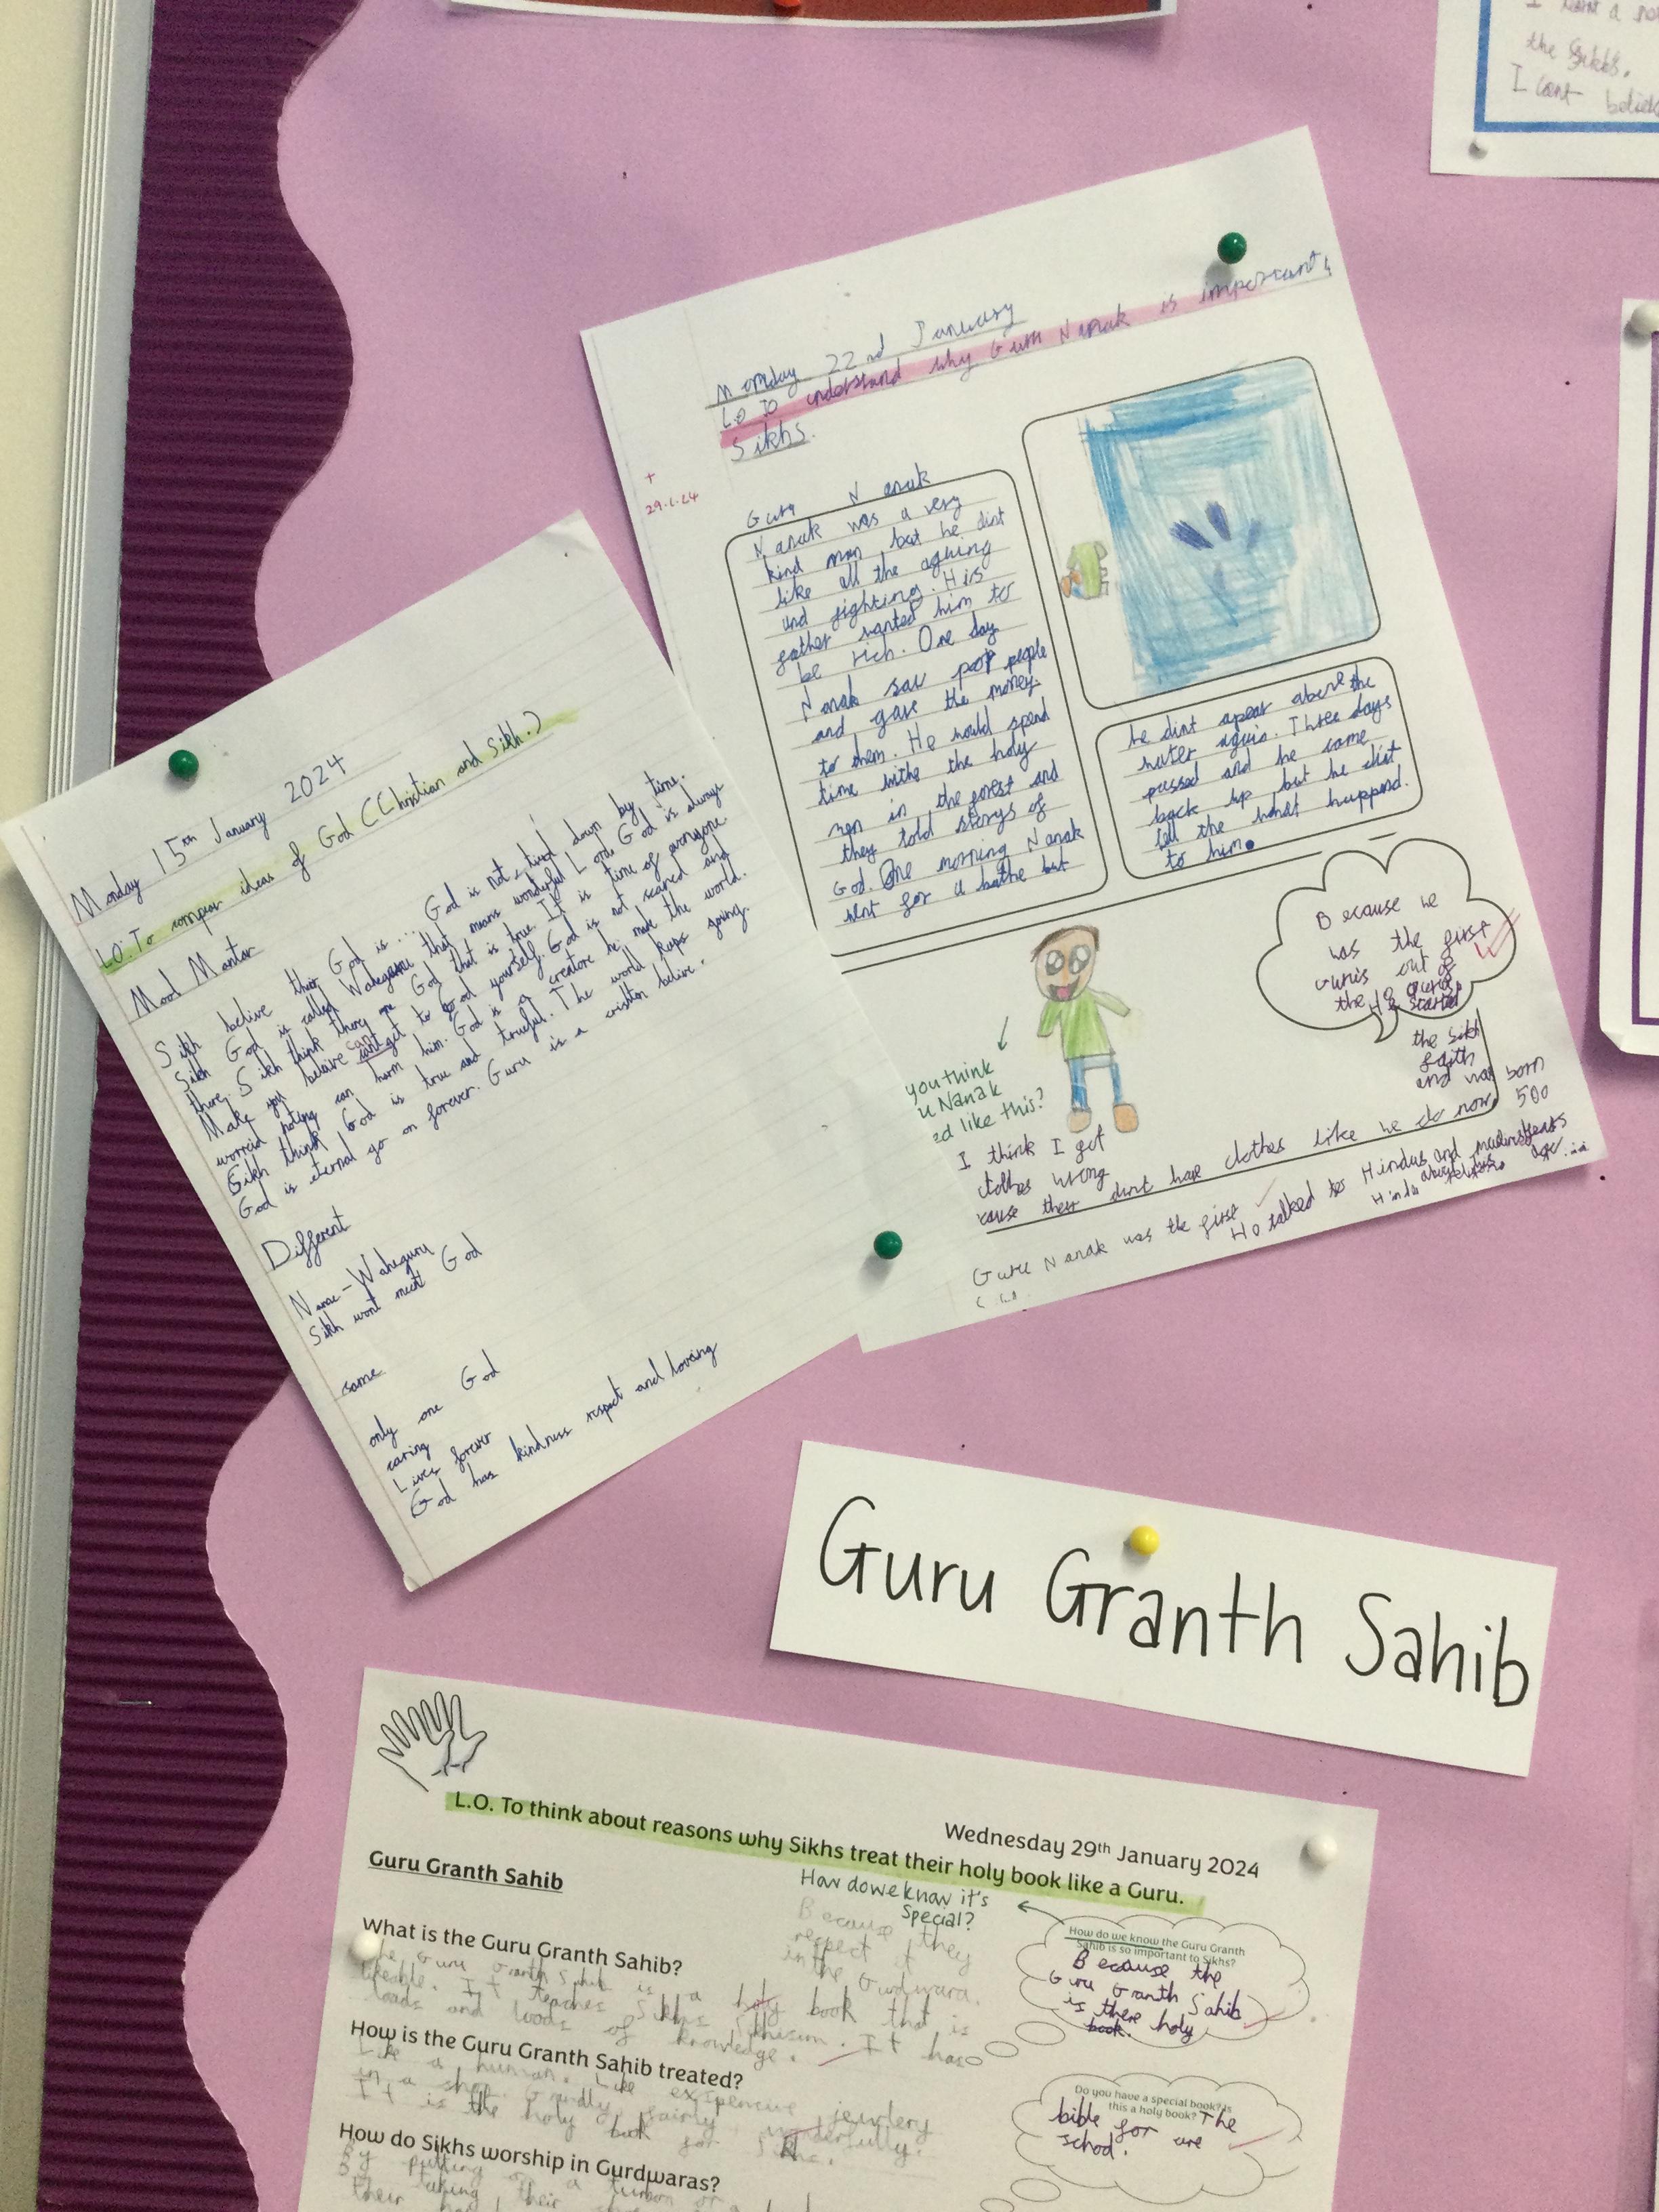 the Sikhs.
I cant
Monday 22nd January
LO To understand why Guru Nanak is important
Sikhs.
29.1.24
Guru Nanak
Nanak was a very
kind man but he dint
like all the aguing
and fighting. His
father wanted him to
be rich. One day
Nanak saw poor people
and gave the money
to them. He would spend
time withe the holy
men in the forest and
they told storys of
God. One morning Nanak
went for a bathe but
he dint apear above the
water again. Three days
passed and he came
back up but he dint
tell the what happend.
to him.
Because he
was the first
out of
the 10 gurus
started
the sikh
faith
and was born
500
years
ago
you think
u Nanak
ed like this?
I think I got
clothes wrong
cause they dint have clothes like we do now
Guru Nanak was the first
He talked to Hindus and
Monday 15th January 2024
LO: To compear ideas of God (Christian and Sikh.)
Mool Mantar
Sikh belive their God is... God is not tired down by time.
Sikh God is called Waheguru that means wonderful Lord God is always
there. Sikh think there one God that is true. It is time of everyone.
Make you belaive cant get to God yourself. God is not scared and
worrid noting can harm him. God is a creatore he made the world.
Sikh think God is true and trueful. The world keeps going.
God is eternal go on forever. Guru is a cristten belive.
Different
Name-Waheguru
Sikh wont meet God
same
only one God
caring
Lives forever
God has kindness respect and loveing
Guru Granth Sahib
Wednesday 29th January 2024
L.O. To think about reasons why Sikhs treat their holy book like a Guru.
Guru Granth Sahib
How do we know it's
Special?
Because they
respect it
in the Gurdwara.
How do we know the Guru Granth
Sahib is so important to Sikhs?
Because the
Guru Granth Sahib
is there holy
book.
What is the Guru Granth Sahib?
The Guru Granth Sahib is a holy book that is
likeable. It teaches Sikhs Sikhisum. It has
loads and loads of knowledge.
How is the Guru Granth Sahib treated?
Like a human. Like exspencive jewelery
in a shop. Grandly, fairly, wonderfully.
It is the holy book for Sikhs.
Do you have a special book? Is
this a holy book?
The
bible for are
school.
How do Sikhs worship in Gurdwaras?
By putting on a turbon or a
By taking their
their